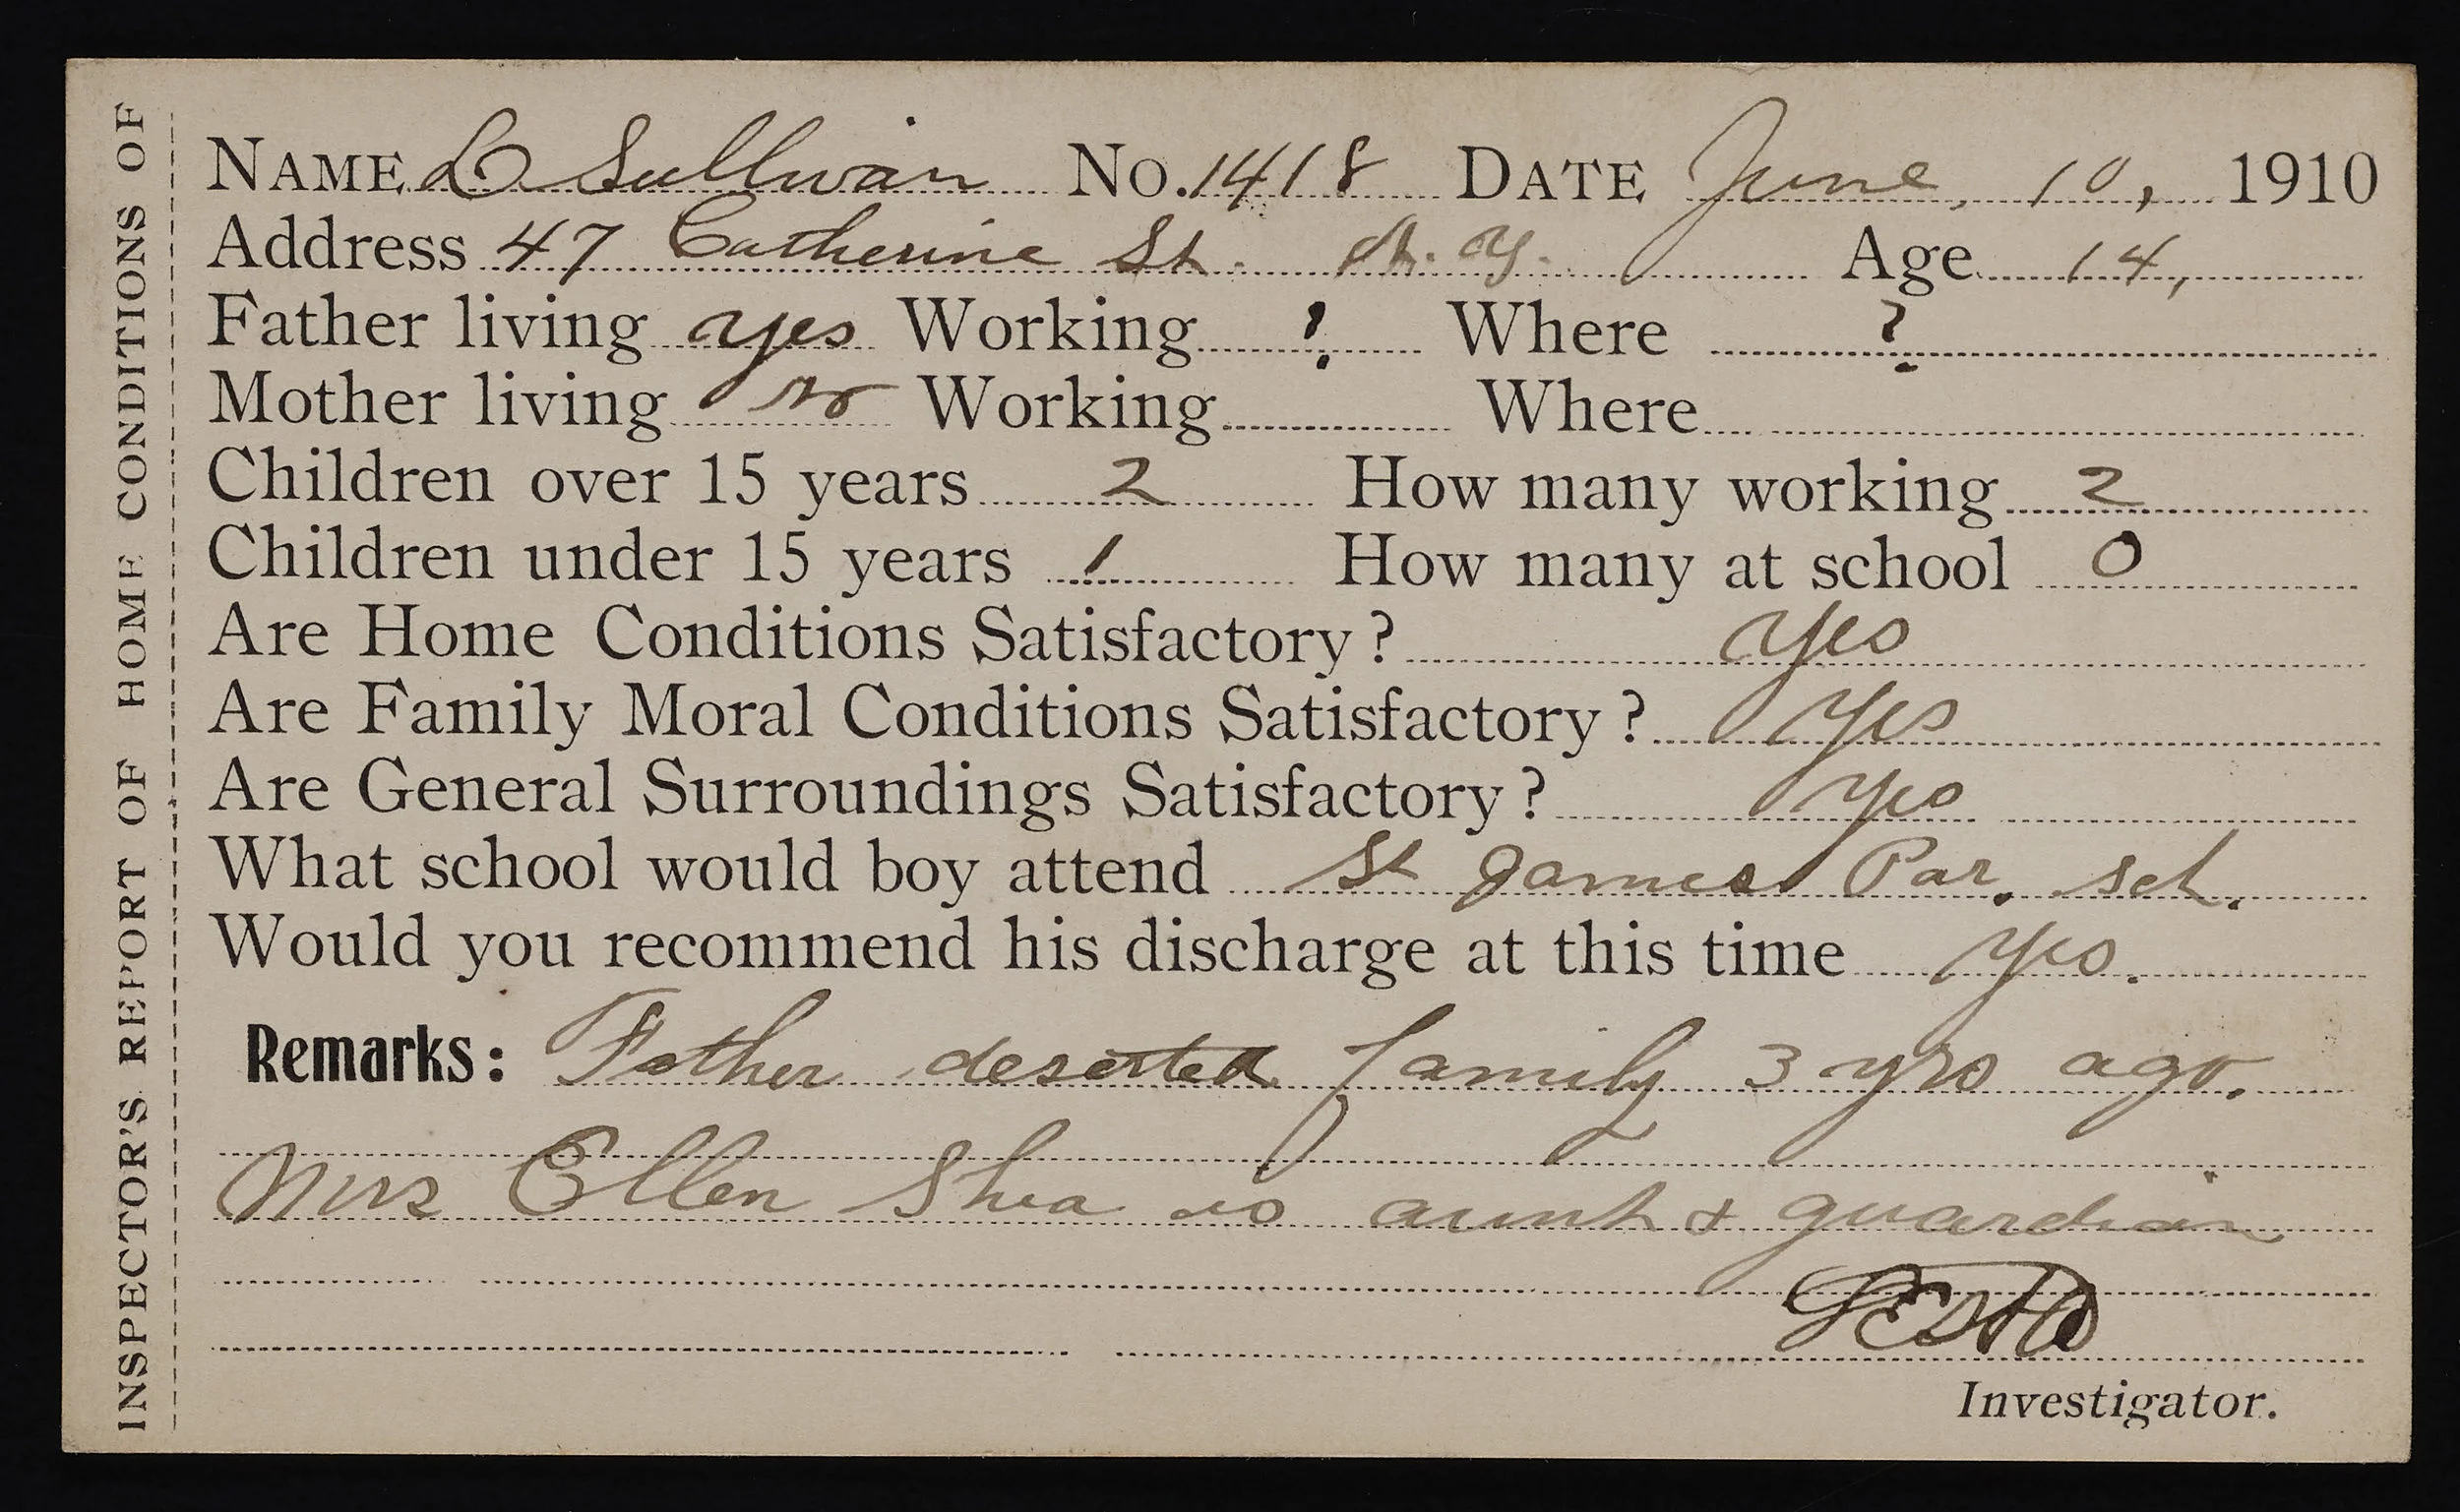 INSPECTOR'S REPORT OF HOME CONDITIONS OF
NAME D Sullivan No. 1418 DATE June, 10, 1910
Address 47 Catherine St. N. Y. Age 14,
Father living yes Working ? Where ?
Mother living no Working Where
Children over 15 years 2 How many working 2
Children under 15 years 1 How many at school 0
Are Home Conditions Satisfactory? Yes
Are Family Moral Conditions Satisfactory? Yes
Are General Surroundings Satisfactory? Yes
What school would boy attend St James Par. sch.
Would you recommend his discharge at this time Yes.
Remarks: Father deserted family 3 yrs ago.
Mrs Ellen Shea is aunt & guardian
Investigator.